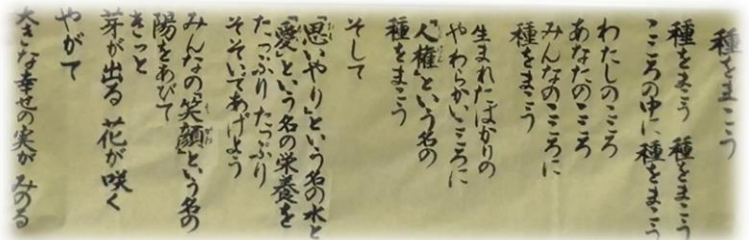 種をまこう
種をまこう　種をまこう
こころの中に種をまこう
わたしのこころ
あなたのこころ
みんなのこころに
種をまこう
生まれたばかりの
やわらかいこころに
「人権」という名の
種をまこう
そして
「思いやり」という名の水と
「愛」という名の栄養を
たっぷり　たっぷり
そそいであげよう
みんなの「笑顔」という名の
陽をあびて
きっと
芽が出る　花が咲く
やがて
大きな幸せの実が　みのる